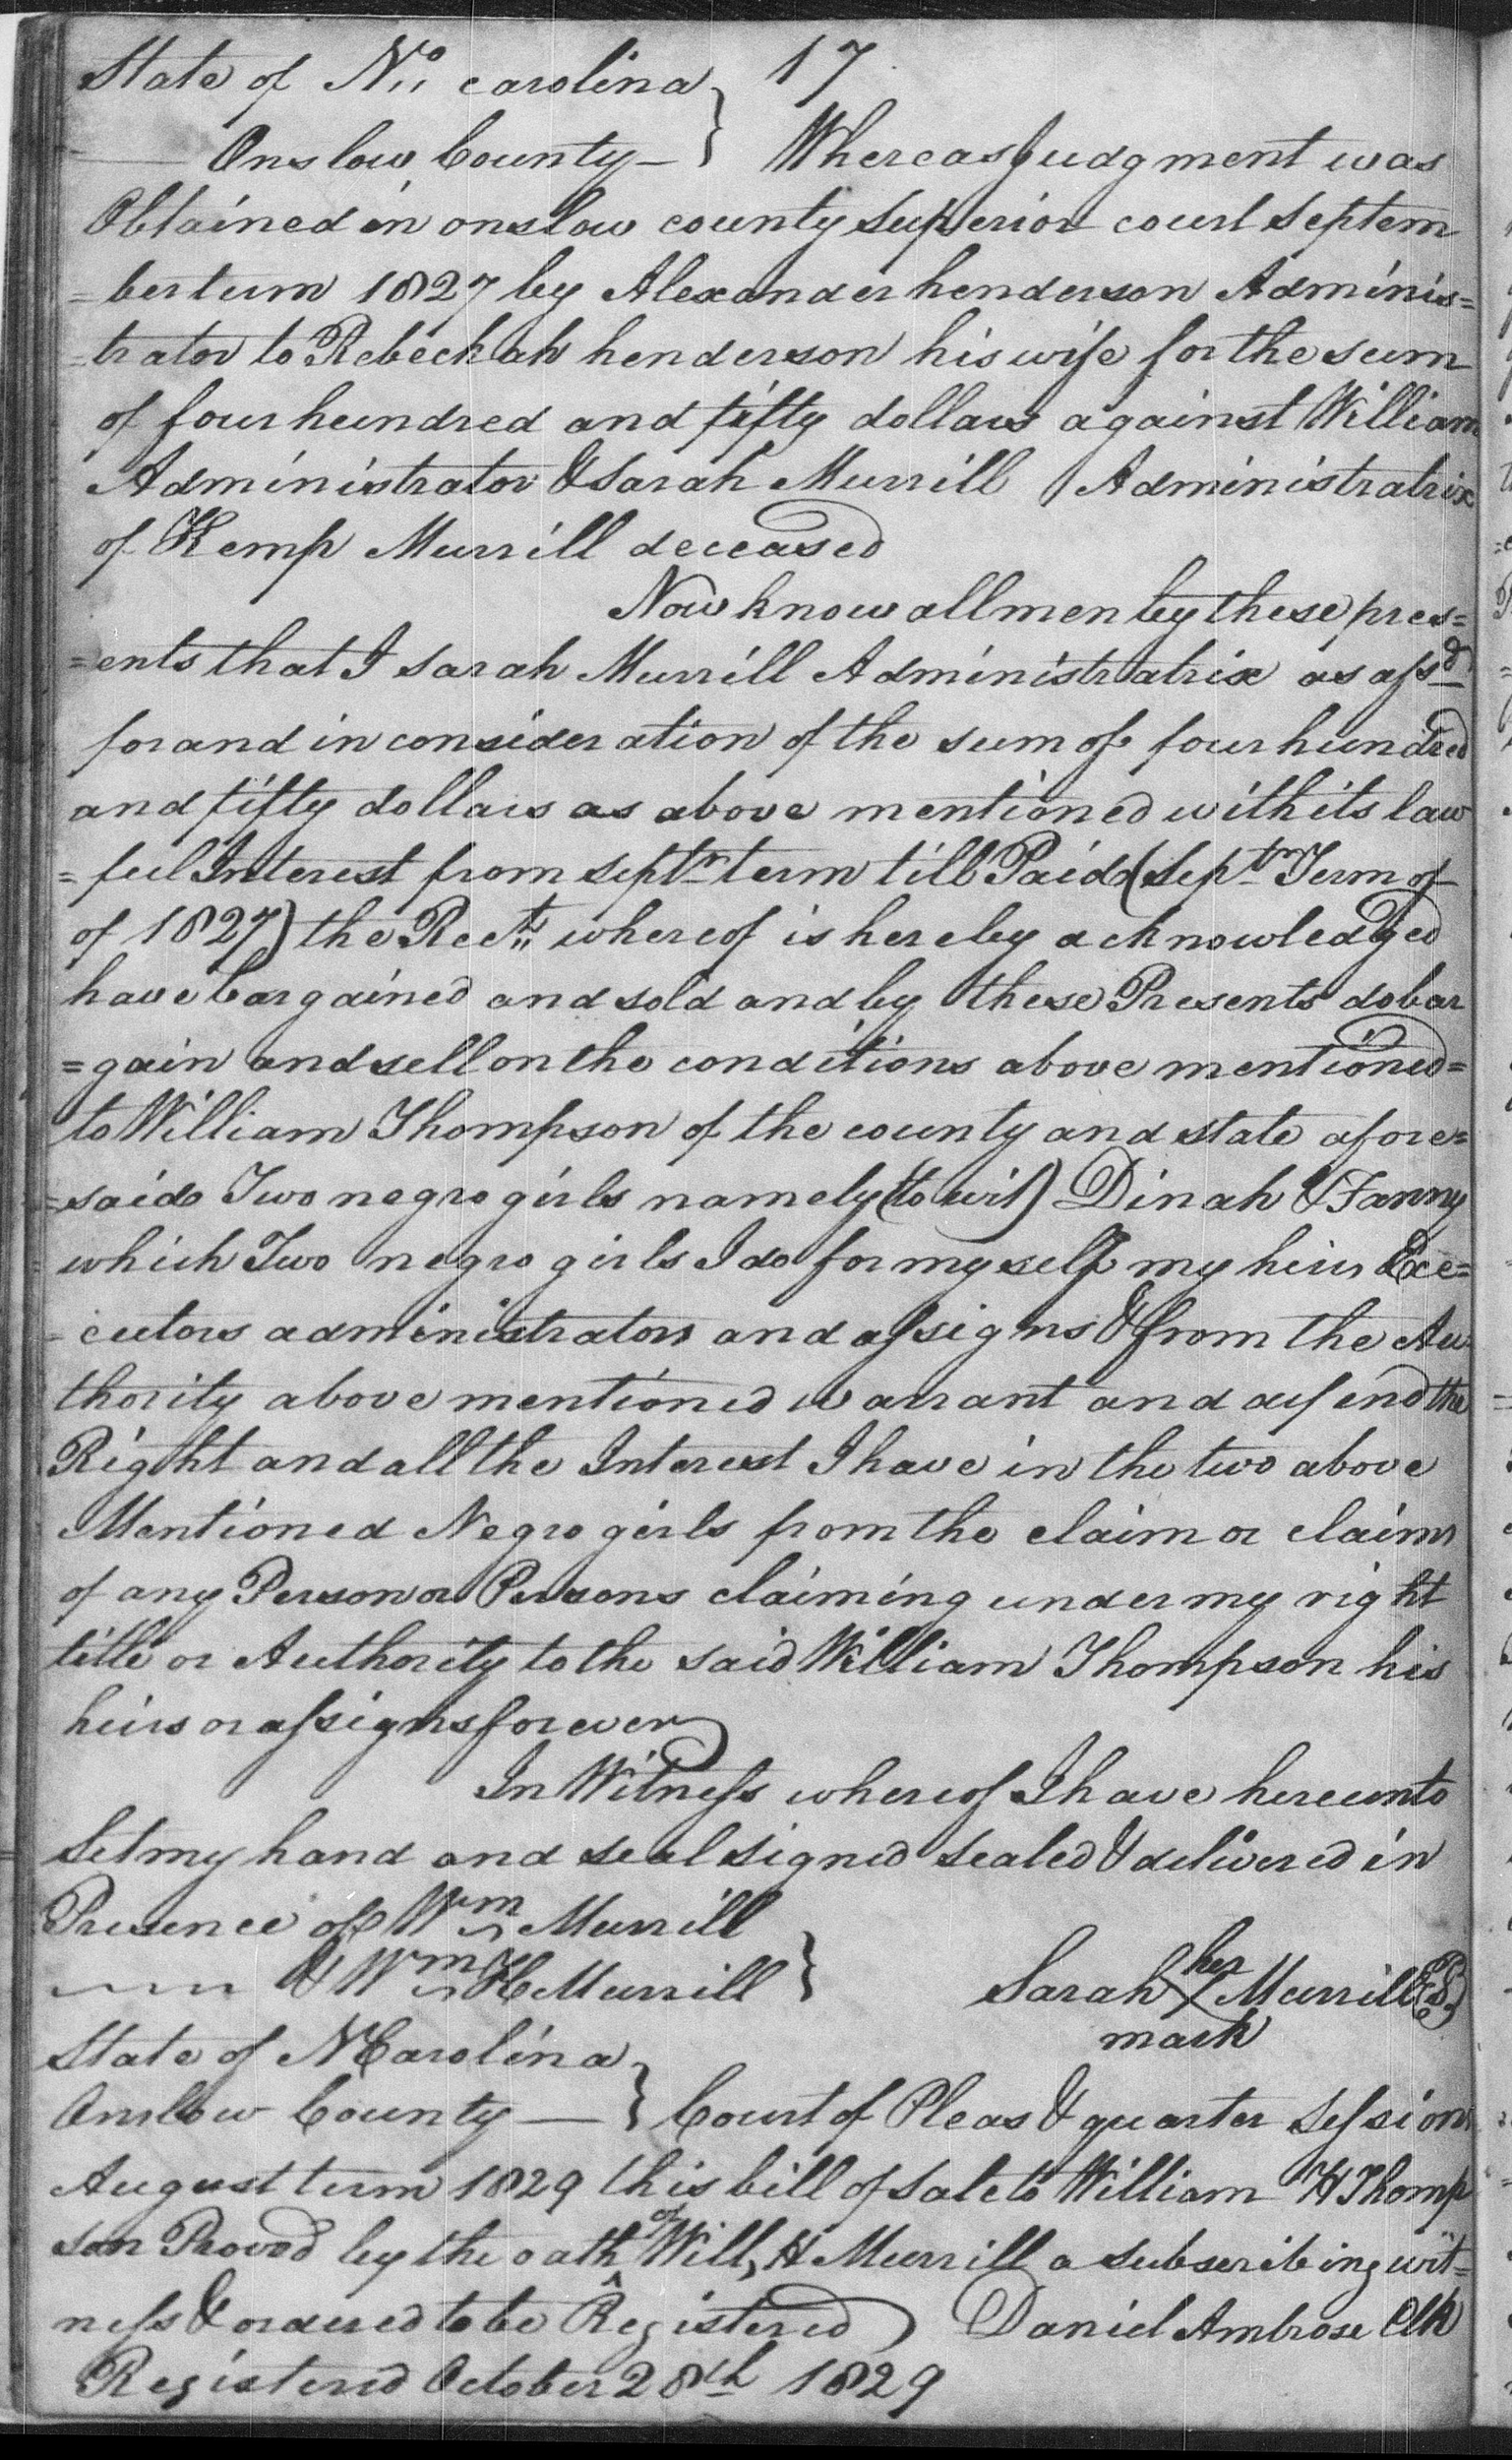 State of No. carolina } 17
Onslow County — } Whereas Judgment was
Obtained in onslow county superior court Septem
=ber term 1827 by Alexander henderson Adminis=
=trator to Rebeckah henderson his wife for the sum
of four hundred and fifty dollars against William
Administrator & Sarah Murrill Administratrix
of Kemp Murrill deceased
Now know all men by these pres=
=ents that I Sarah Murrill Administratrix as afsd
for and in consideration of the sum of four hundred
and fifty dollars as above mentioned with its law
=ful Interest from septr term till Paid (Septr Term of
of 1827) the Rect whereof is hereby acknowledged
have bargained and sold and by these Presents do bar
=gain and sell on the conditions above mentioned=
to William Thompson of the county and state afore=
=said Two negro girls namely (to wit) Dinah & Fanny
which Two negro girls I do for my self my heirs Exe=
=cutors administrators and assigns & from the Au
thority above mentioned warrant and defend the
Right and all the Interest I have in the two above
Mentioned Negro girls from the claim or claims
of any Person or Persons claiming under my right
title or Authority to the said William Thompson his
heirs or assigns forever
In Witness whereof I have hereunto
Set my hand and seal signed sealed & delivered in
Presence of Wm Murrill
& Wm H Murrill } Sarah her X mark Murrill (LS)
State of N Carolina }
Onslow County — } Court of Pleas & quarter Sessions
August term 1829 this bill of sale to William H Thomp
son Proved by the oath of Will, H Murrill a subscribing wit=
ness & ordered to be Registered Daniel Ambrose Clk
Registered October 28th 1829